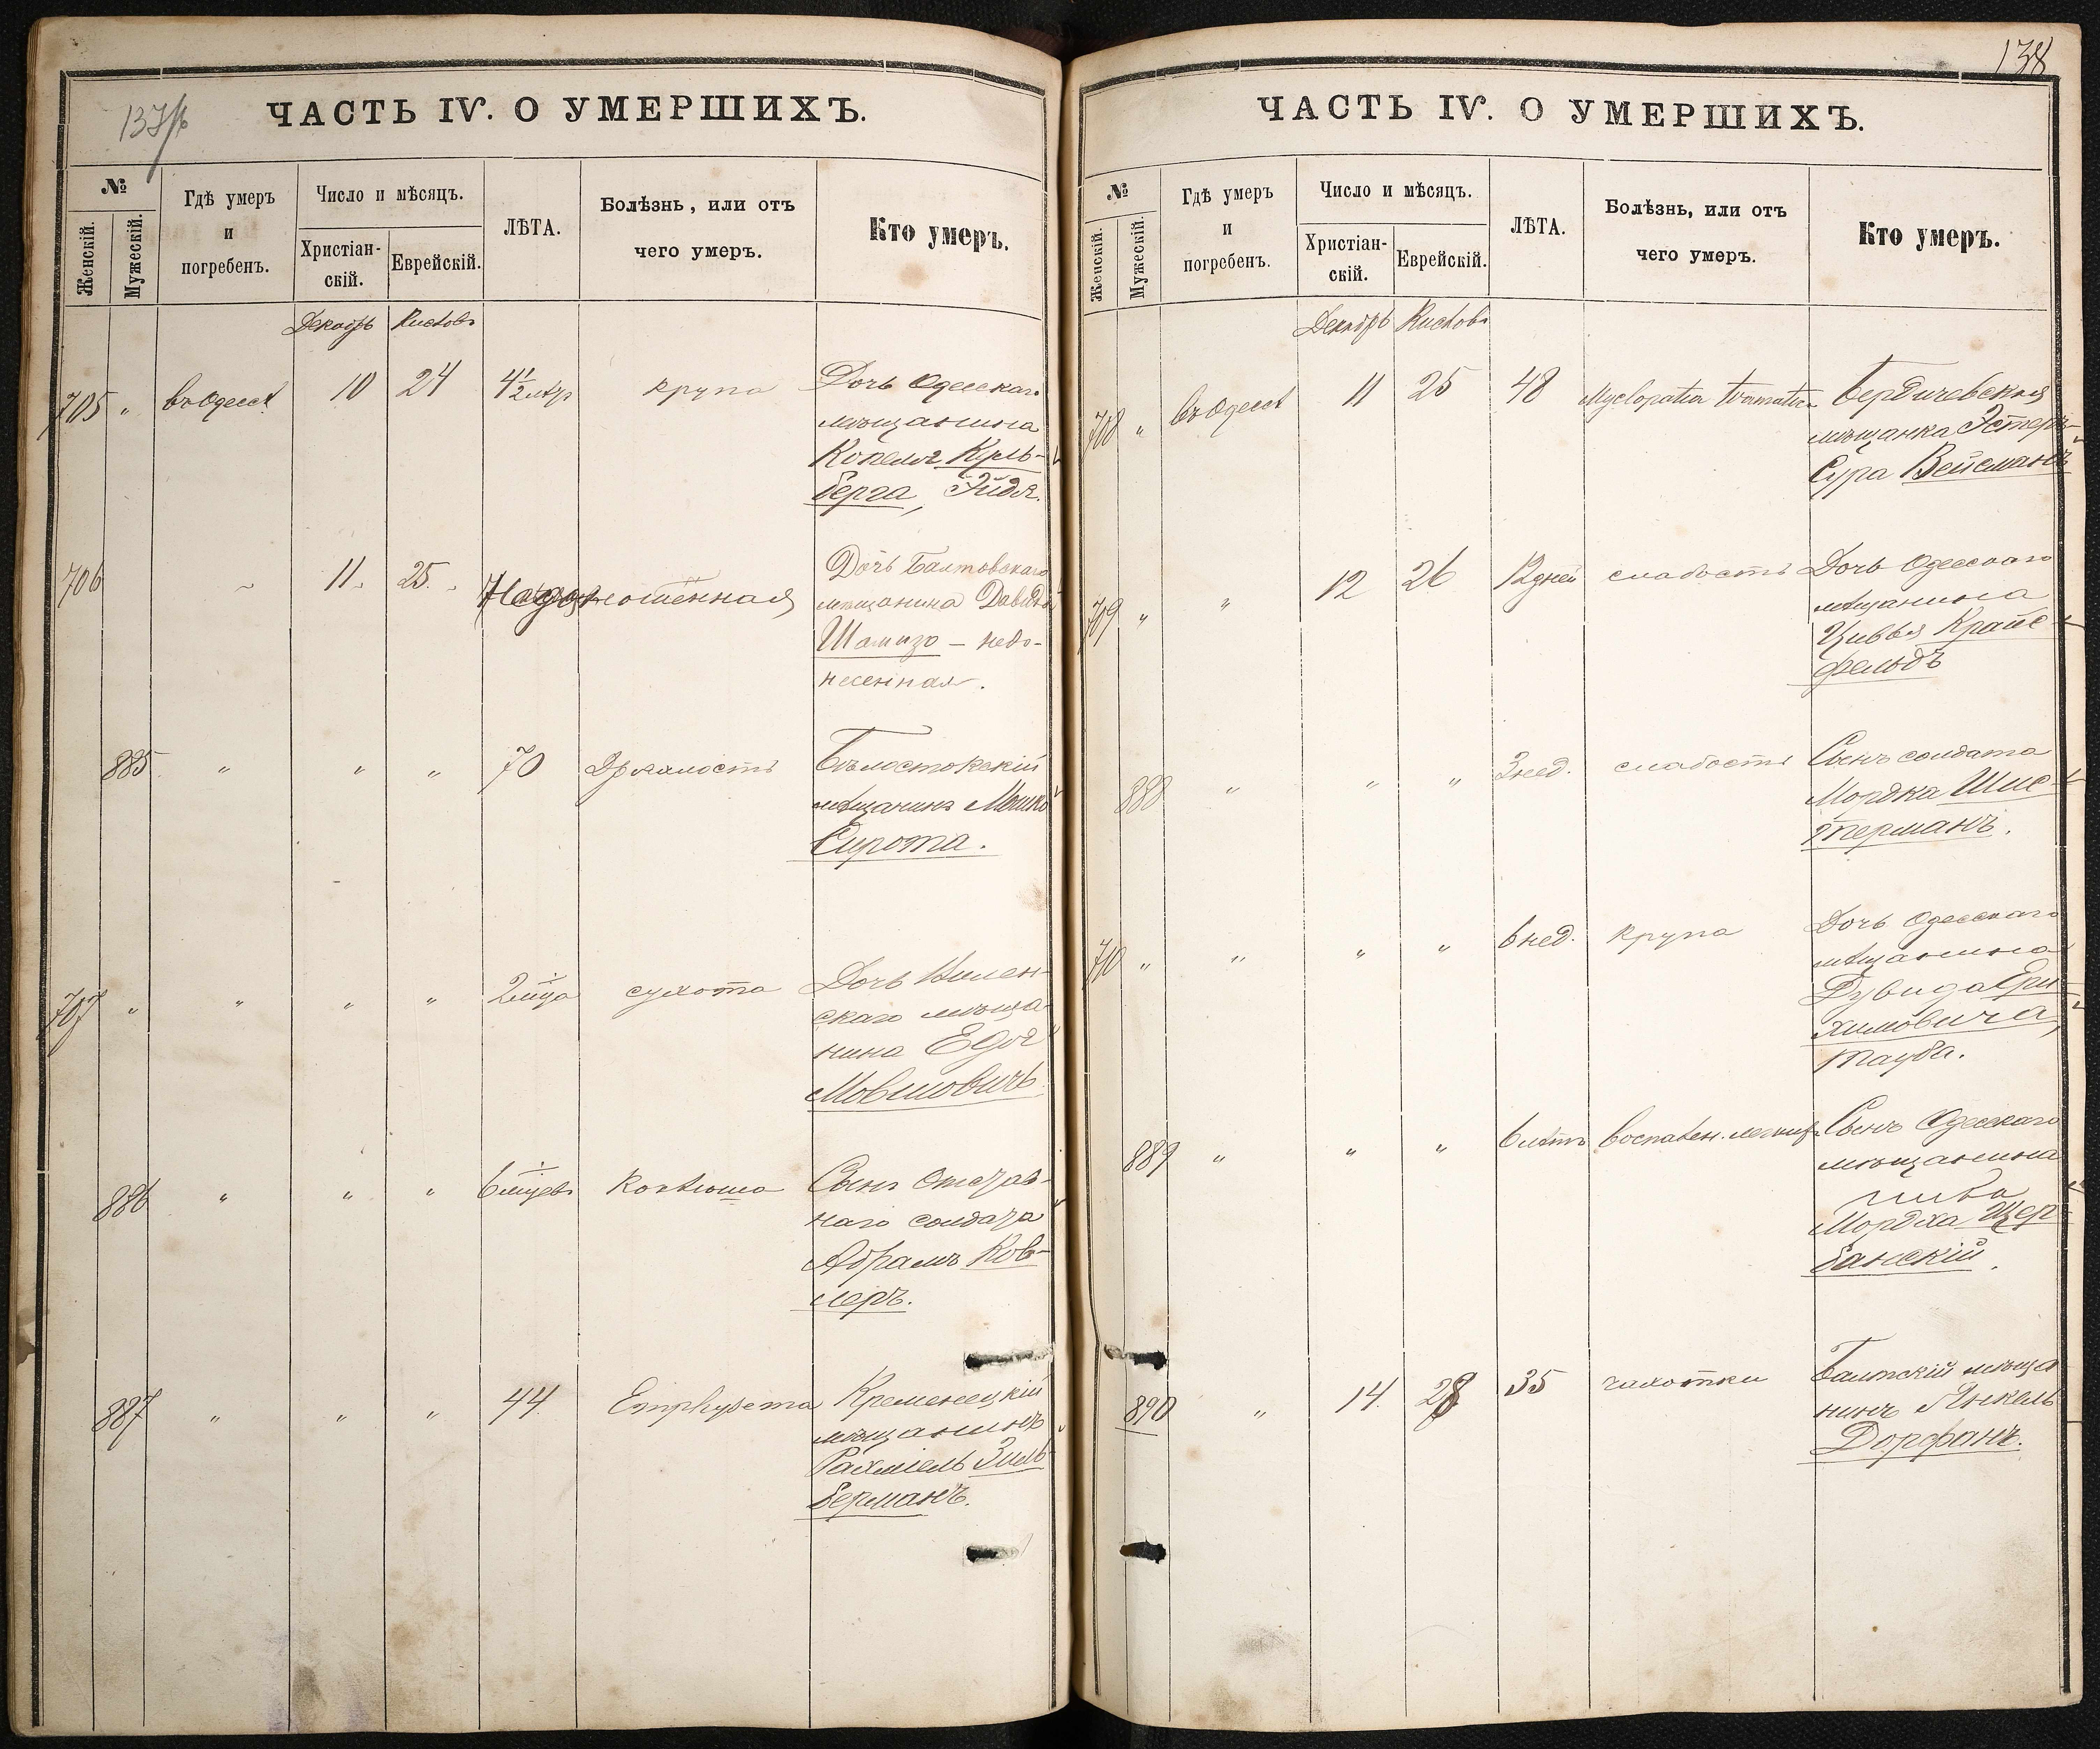 ЧАСТЬ IV. О УМЕРШИХЪ.
№
Женскій.
Мужескій.
Гдѣ умеръ
и
погребенъ.
Число и мѣсяцъ.
Христіан-
скій.
Еврейскій.
ЛѢТА.
Болѣзнь, или отъ
чего умеръ.
Кто умеръ.
Декабрь
705 „ въ Одессѣ 10 24 4½ крупа Дочь Одесскаго
мѣщанина
Копеля Куль-
берга, Эйдя.
706 11 25 Недоношенная Дочь Балтовскаго
мѣщанина Давида
Шамизо — недо-
несенная.
885 „ „ „ 70 Дряхлость Бѣлостокскій
мѣщанинъ Мошко
Сирота.
707 „ „ „ „ 2 м-ца сухота Дочь
скаго мѣща-
нина Едя
Мовшовичъ
886 „ „ „ 6 м-цевъ Коклюшъ Сынъ Отстав-
наго солдата
Абрамъ Ков-
леръ.
887 „ „ „ 44 Emphysema Кременецкій
мѣщанинъ
Рахміель Зиль-
берманъ.
138
ЧАСТЬ IV. О УМЕРШИХЪ.
№
Женскій.
Мужескій.
Гдѣ умеръ
и
погребенъ.
Число и мѣсяцъ.
Христіан-
скій.
Еврейскій.
ЛѢТА.
Болѣзнь, или отъ
чего умеръ.
Кто умеръ.
Декабрь
708 „ въ Одессѣ 11 25 48 Бердичевская
мѣщанка Эстеръ-
Сура Вейсманъ
709 „ „ 12 26 12 дней слабость Дочь Одесскаго
мѣщанина
Цивья Крайс-
фельдъ
888 „ „ „ 3 нед. слабость Сынъ солдата
Мордка Шис-
терманъ.
710 „ „ „ „ 6 нед. крупа Дочь Одесскаго
мѣщанина
Дувида Ери-
химовича,
Тауба.
889 „ „ „ 6 лѣтъ воспален. легкихъ Сынъ Одесскаго
мѣщанина
Мордха Щер-
банскій.
890 „ 14. 28 35 чахотки Балтскій мѣща
нинъ Янкель
Дорфанъ.